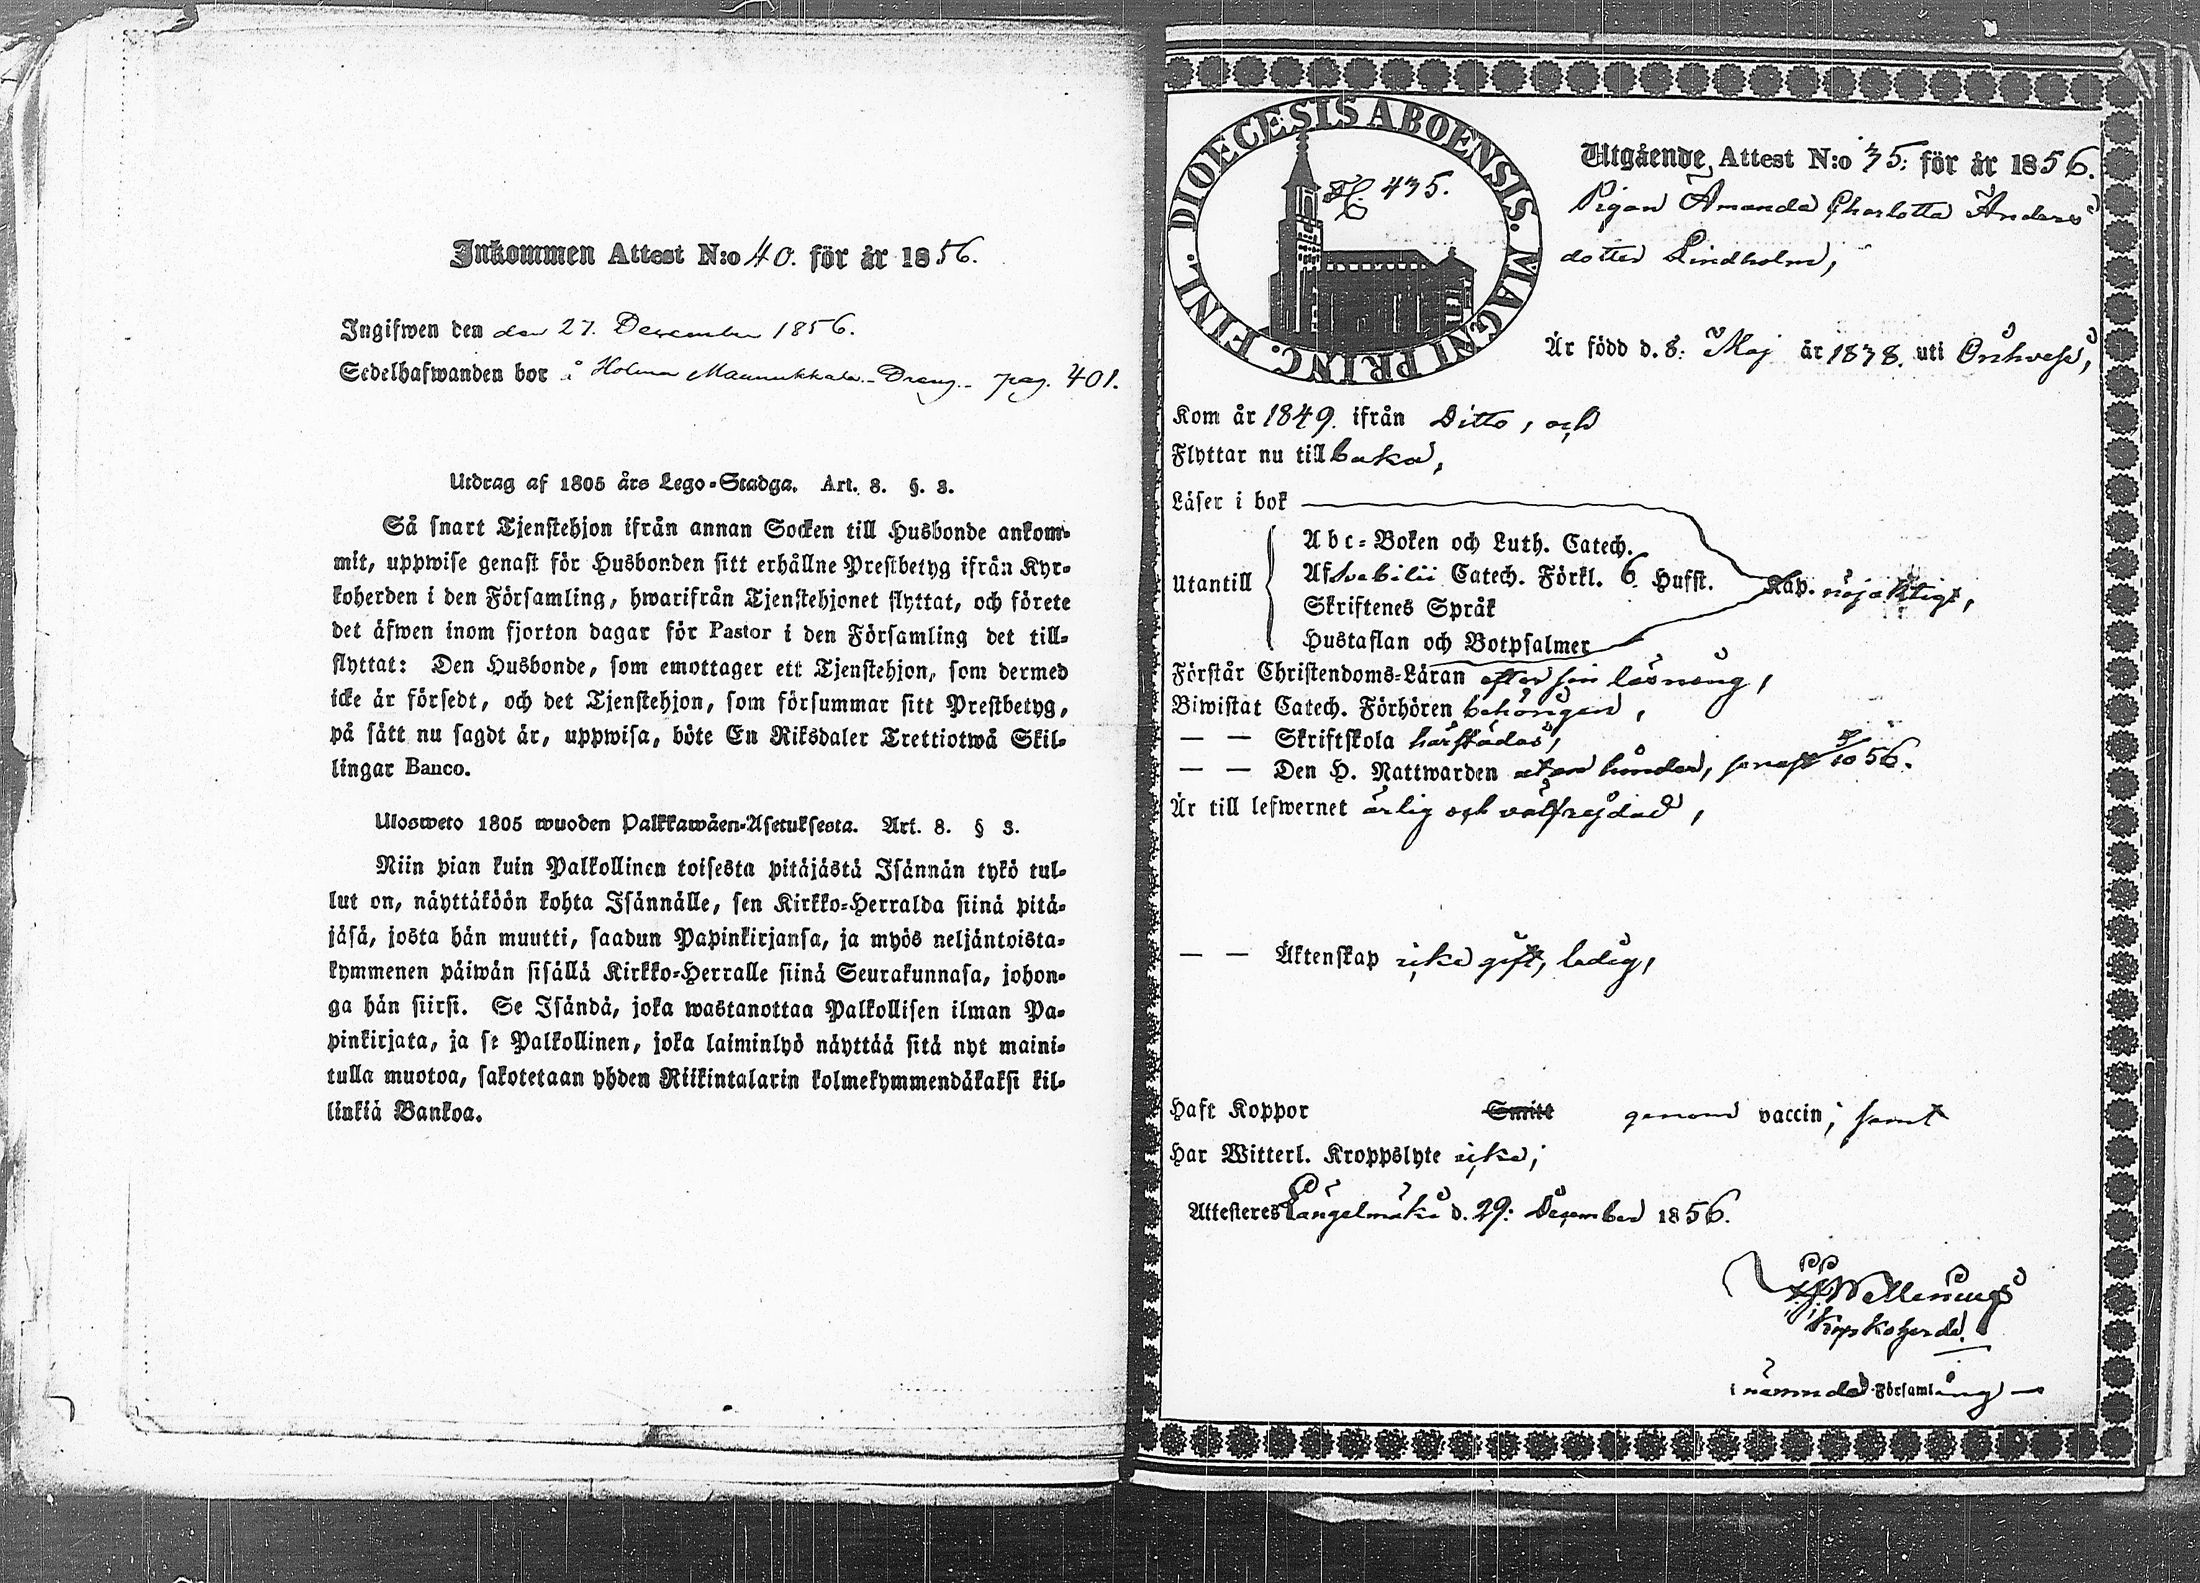 Inkommen Attest N:o 40. för år 1856.
Ingifwen den den 27. December 1856.
Sedelhafwanden bor å Holma Maunukkala - Dräng - pag. 401.
Utdrag af 1805 års Lego-Stadga. Art. 8. §. 3.
Så snart Tjenstehjon ifrån annan Socken till Husbonde ankom-
mit, uppwise genast för Husbonden sitt erhållne Prestbetyg ifrån Kyr-
koherden i den Församling, hwarifrån Tjenstehjonet flyttat, och förete
det äfwen inom fjorton dagar för Pastor i den Församling det till-
flyttat: Den Husbonde, som emottager ett Tjenstehjon, som dermed
icke är försedt, och det Tjenstehjon, som försummar sitt Prestbetyg,
på sätt nu sagdt är, uppwisa, böte En Riksdaler Trettiotwå Skil-
lingar Banco.
Ulosweto 1805 wuoden Palkkawäen-Asetuksesta. Art. 8. § 3.
Niin pian kuin Palkollinen toisesta pitäjästä Isännän tykö tul-
lut on, näyttäköön kohta Isännälle, sen Kirkko-Herralda siinä pitä-
jäsä, josta hän muutti, saadun Papinkirjansa, ja myös neljäntoista-
kymmenen päiwän sisällä Kirkko-Herralle siinä Seurakunnasa, johon-
ga hän siirsi. Se Isändä, joka wastanottaa Palkollisen ilman Pa-
pinkirjata, ja se Palkollinen, joka laiminlyö näyttää sitä nyt maini-
tulla muotoa, sakotetaan yhden Riikintalarin kolmekymmendäkaksi kil-
linkiä Bankoa.
DIOECESIS ABOENSIS. MAGNI PRINC. FINL.
435.
Utgående Attest N:o 35: för år 1856.
Pigan Amanda Charlotta Anders
dotter Lindholm,
Är född d. 8: Maj år 1838. uti Orihvesi,
Kom år 1849. ifrån Ditto, och
Flyttar nu till baka,
Läser i bok
Utantill
Abc-Boken och Luth. Catech.
Af Svebilii Catech. Förkl. 6 Hufst. Kap. nöjaktigt,
Skriftenes Språk
Hustaflan och Botpsalmer
Förstår Christendoms-Läran efter sin läsning,
Biwistat Catech. Förhören behörigen,
— — Skriftskola härstädes,
— — Den H. Nattwarden utan hinder, senast 5/10 56.
Är till lefwernet ärlig och välfrejdad,
— — Äktenskap icke gift, ledig,
Haft Koppor Smitt genom vaccin, samt
Har Witterl. Kroppslyte icke;
Attesteres Längelmäki d. 29: December 1856.
Kyrkoherde.
i nämnde Församling